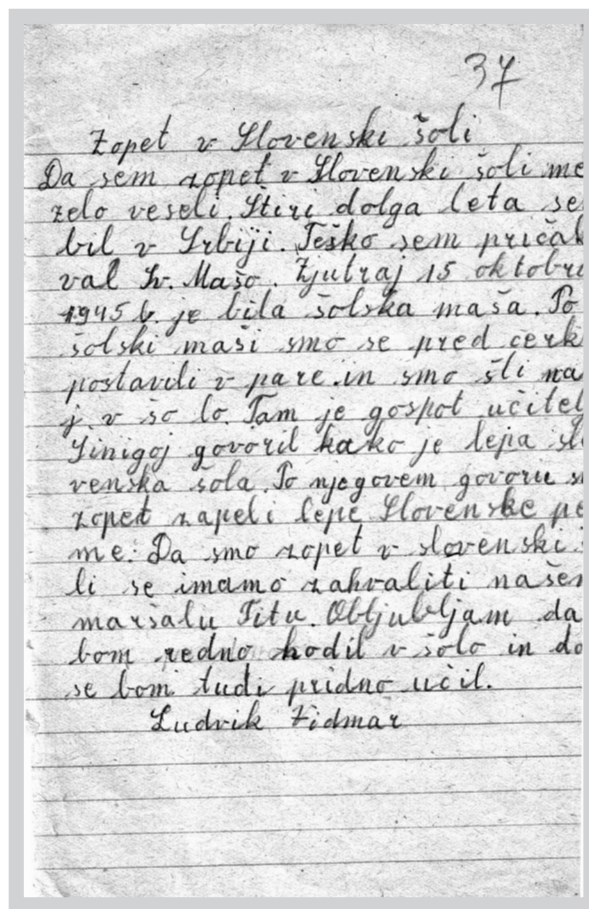 37
Zopet v Slovenski šoli
Da sem zopet v Slovenski šoli me
zelo veseli. Štiri dolga leta se
bil v Srbiji. Teško sem pričak
val Sv. Mašo. Zjutraj 15 oktobr
1945 l. je bila šolska maša. Po
šolski maši smo se pred cerk
postavili v pare in smo šli na
j. v šo lo. Tam je gospot učitel
Sinigoj govoril kako je lepa sl
venska šola. Po njegovem govoru s
zopet zapeli lepe Slovenske pe
me. Da smo zopet v slovenski
li se imamo zahvaliti naše
maršalu Titu. Obljubljam da
bom redno hodil v šolo in do
se bom tudi pridno učil.
Ludvik Židmar